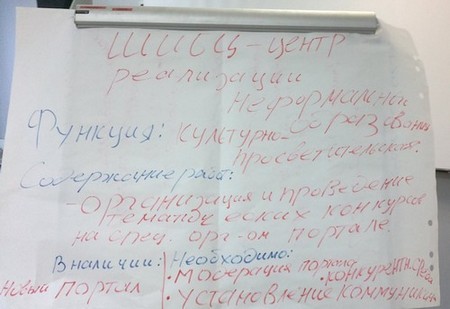 ШИСЦ-центр
реализации
Неформального
образования
Функция: культурно-
просветительская.
Содержание работ:
-Организация и проведение
тематических конкурсов
на спец. орг-ом портале.
В наличии: Необходимо:
новый портал
•модерация портала
•конкурентно
•установление коммуникац